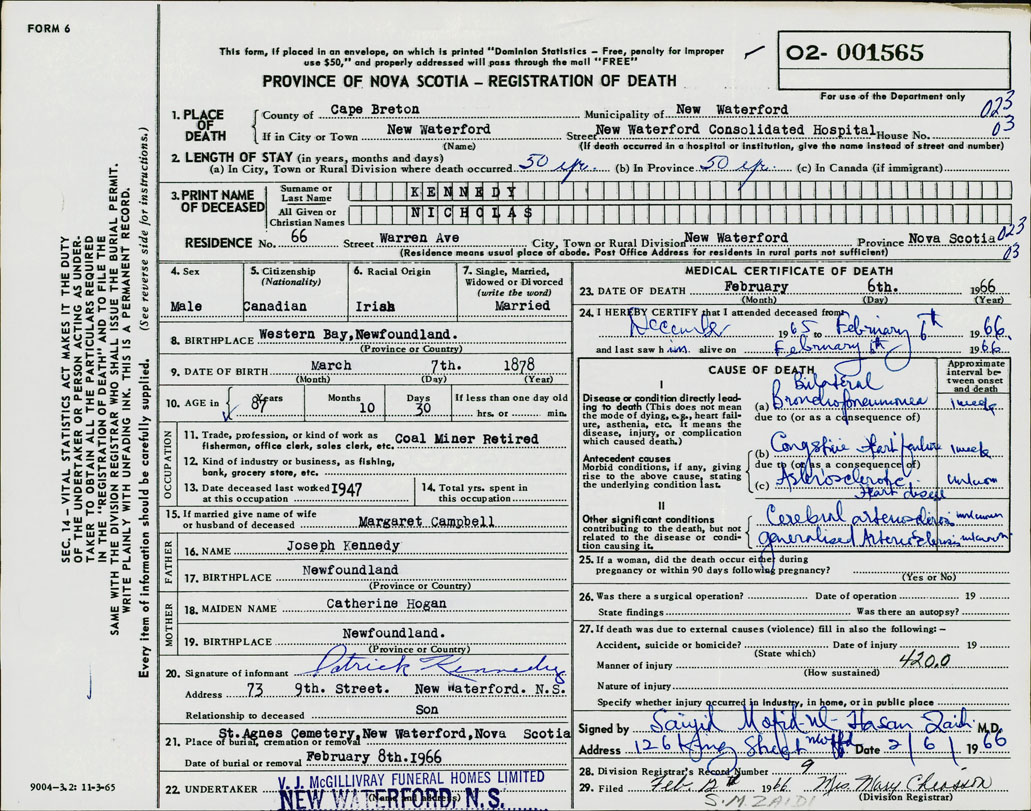 FORM 6
This form, if placed in an envelope, on which is printed "Dominion Statistics — Free, penalty for improper
use $50," and properly addressed will pass through the mail "FREE"
PROVINCE OF NOVA SCOTIA — REGISTRATION OF DEATH
02- 001565
For use of the Department only
1. PLACE OF DEATH
County of Cape Breton Municipality of New Waterford 023
If in City or Town New Waterford Street New Waterford Consolidated Hospital House No. 03
(Name) (If death occurred in a hospital or institution, give the name instead of street and number)
2. LENGTH OF STAY (in years, months and days)
(a) In City, Town or Rural Division where death occurred 50 yr. (b) In Province 50 yr. (c) In Canada (if immigrant)
3. PRINT NAME OF DECEASED
Surname or Last Name KENNEDY
All Given or Christian Names NICHOLAS
RESIDENCE No. 66 Street Warren Ave City, Town or Rural Division New Waterford Province Nova Scotia 023
(Residence means usual place of abode. Post Office Address for residents in rural parts not sufficient) 03
4. Sex
Male
5. Citizenship
(Nationality)
Canadian
6. Racial Origin
Irish
7. Single, Married,
Widowed or Divorced
(write the word)
Married
8. BIRTHPLACE Western Bay, Newfoundland.
(Province or Country)
9. DATE OF BIRTH March 7th. 1878
(Month) (Day) (Year)
10. AGE in Years Months Days If less than one day old
87 10 30 hrs. or min.
OCCUPATION
11. Trade, profession, or kind of work as Coal Miner Retired
fisherman, office clerk, sales clerk, etc.
12. Kind of industry or business, as fishing,
bank, grocery store, etc.
13. Date deceased last worked 1947
at this occupation
14. Total yrs. spent in
this occupation
15. If married give name of wife
or husband of deceased Margaret Campbell
FATHER
16. NAME Joseph Kennedy
17. BIRTHPLACE Newfoundland
(Province or Country)
MOTHER
18. MAIDEN NAME Catherine Hogan
19. BIRTHPLACE Newfoundland.
(Province or Country)
20. Signature of informant Patrick Kennedy
Address 73 9th. Street. New Waterford. N.S.
Relationship to deceased Son
21. Place of burial, cremation or removal St. Agnes Cemetery, New Waterford, Nova Scotia
Date of burial or removal February 8th. 1966
22. UNDERTAKER V. J. McGILLIVRAY FUNERAL HOMES LIMITED
(Name and address)
NEW WATERFORD, N.S.
MEDICAL CERTIFICATE OF DEATH
23. DATE OF DEATH February 6th. 1966
(Month) (Day) (Year)
24. I HEREBY CERTIFY that I attended deceased from
December 1965 to February 6th 1966
and last saw him alive on February 6th 1966.
CAUSE OF DEATH
Approximate interval between onset and death
I
Disease or condition directly leading to death (This does not mean the mode of dying, e.g., heart failure, asthenia, etc. It means the disease, injury, or complication which caused death.)
Bilateral
(a) Bronchopneumonia 1 week
due to (or as a consequence of)
Antecedent causes
Morbid conditions, if any, giving rise to the above cause, stating the underlying condition last.
(b) Congstive Heart failure 1 week
due to (or as a consequence of)
(c) Asterosclerotic unknown
Heart disease
II
Other significant conditions
contributing to the death, but not related to the disease or condition causing it.
Cerebral arteriosclerosis unknown
generalised Arteriosclerosis unknown
25. If a woman, did the death occur either during
pregnancy or within 90 days following pregnancy?
(Yes or No)
26. Was there a surgical operation? Date of operation 19
State findings Was there an autopsy?
27. If death was due to external causes (violence) fill in also the following:—
Accident, suicide or homicide? Date of injury 19
(State which)
Manner of injury 420.0
(How sustained)
Nature of injury
Specify whether injury occurred in industry, in home, or in public place
Signed by Saiyid Mofid-ul-Hasan Zaidi M.D.
Address 126 King Street Date 2/6/ 1966
28. Division Registrar's Record Number 9
29. Filed Feb 12th 1966 Mrs. Mary Chiasson
S.M. ZAIDI (Division Registrar)
SEC. 14 — VITAL STATISTICS ACT MAKES IT THE DUTY
OF THE UNDERTAKER OR PERSON ACTING AS UNDER-
TAKER TO OBTAIN ALL THE PARTICULARS REQUIRED
IN THE "REGISTRATION OF DEATH" AND TO FILE THE
SAME WITH THE DIVISION REGISTRAR WHO SHALL ISSUE THE BURIAL PERMIT.
WRITE PLAINLY WITH UNFADING INK. THIS IS A PERMANENT RECORD.
Every item of information should be carefully supplied. (See reverse side for instructions.)
9004-3.2: 11-3-65